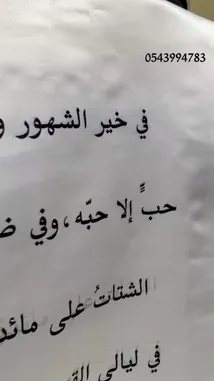 0543994783
في خير الشهور
حبٍّ إلا حبّه، وفي
الشتاتُ على
في ليالي